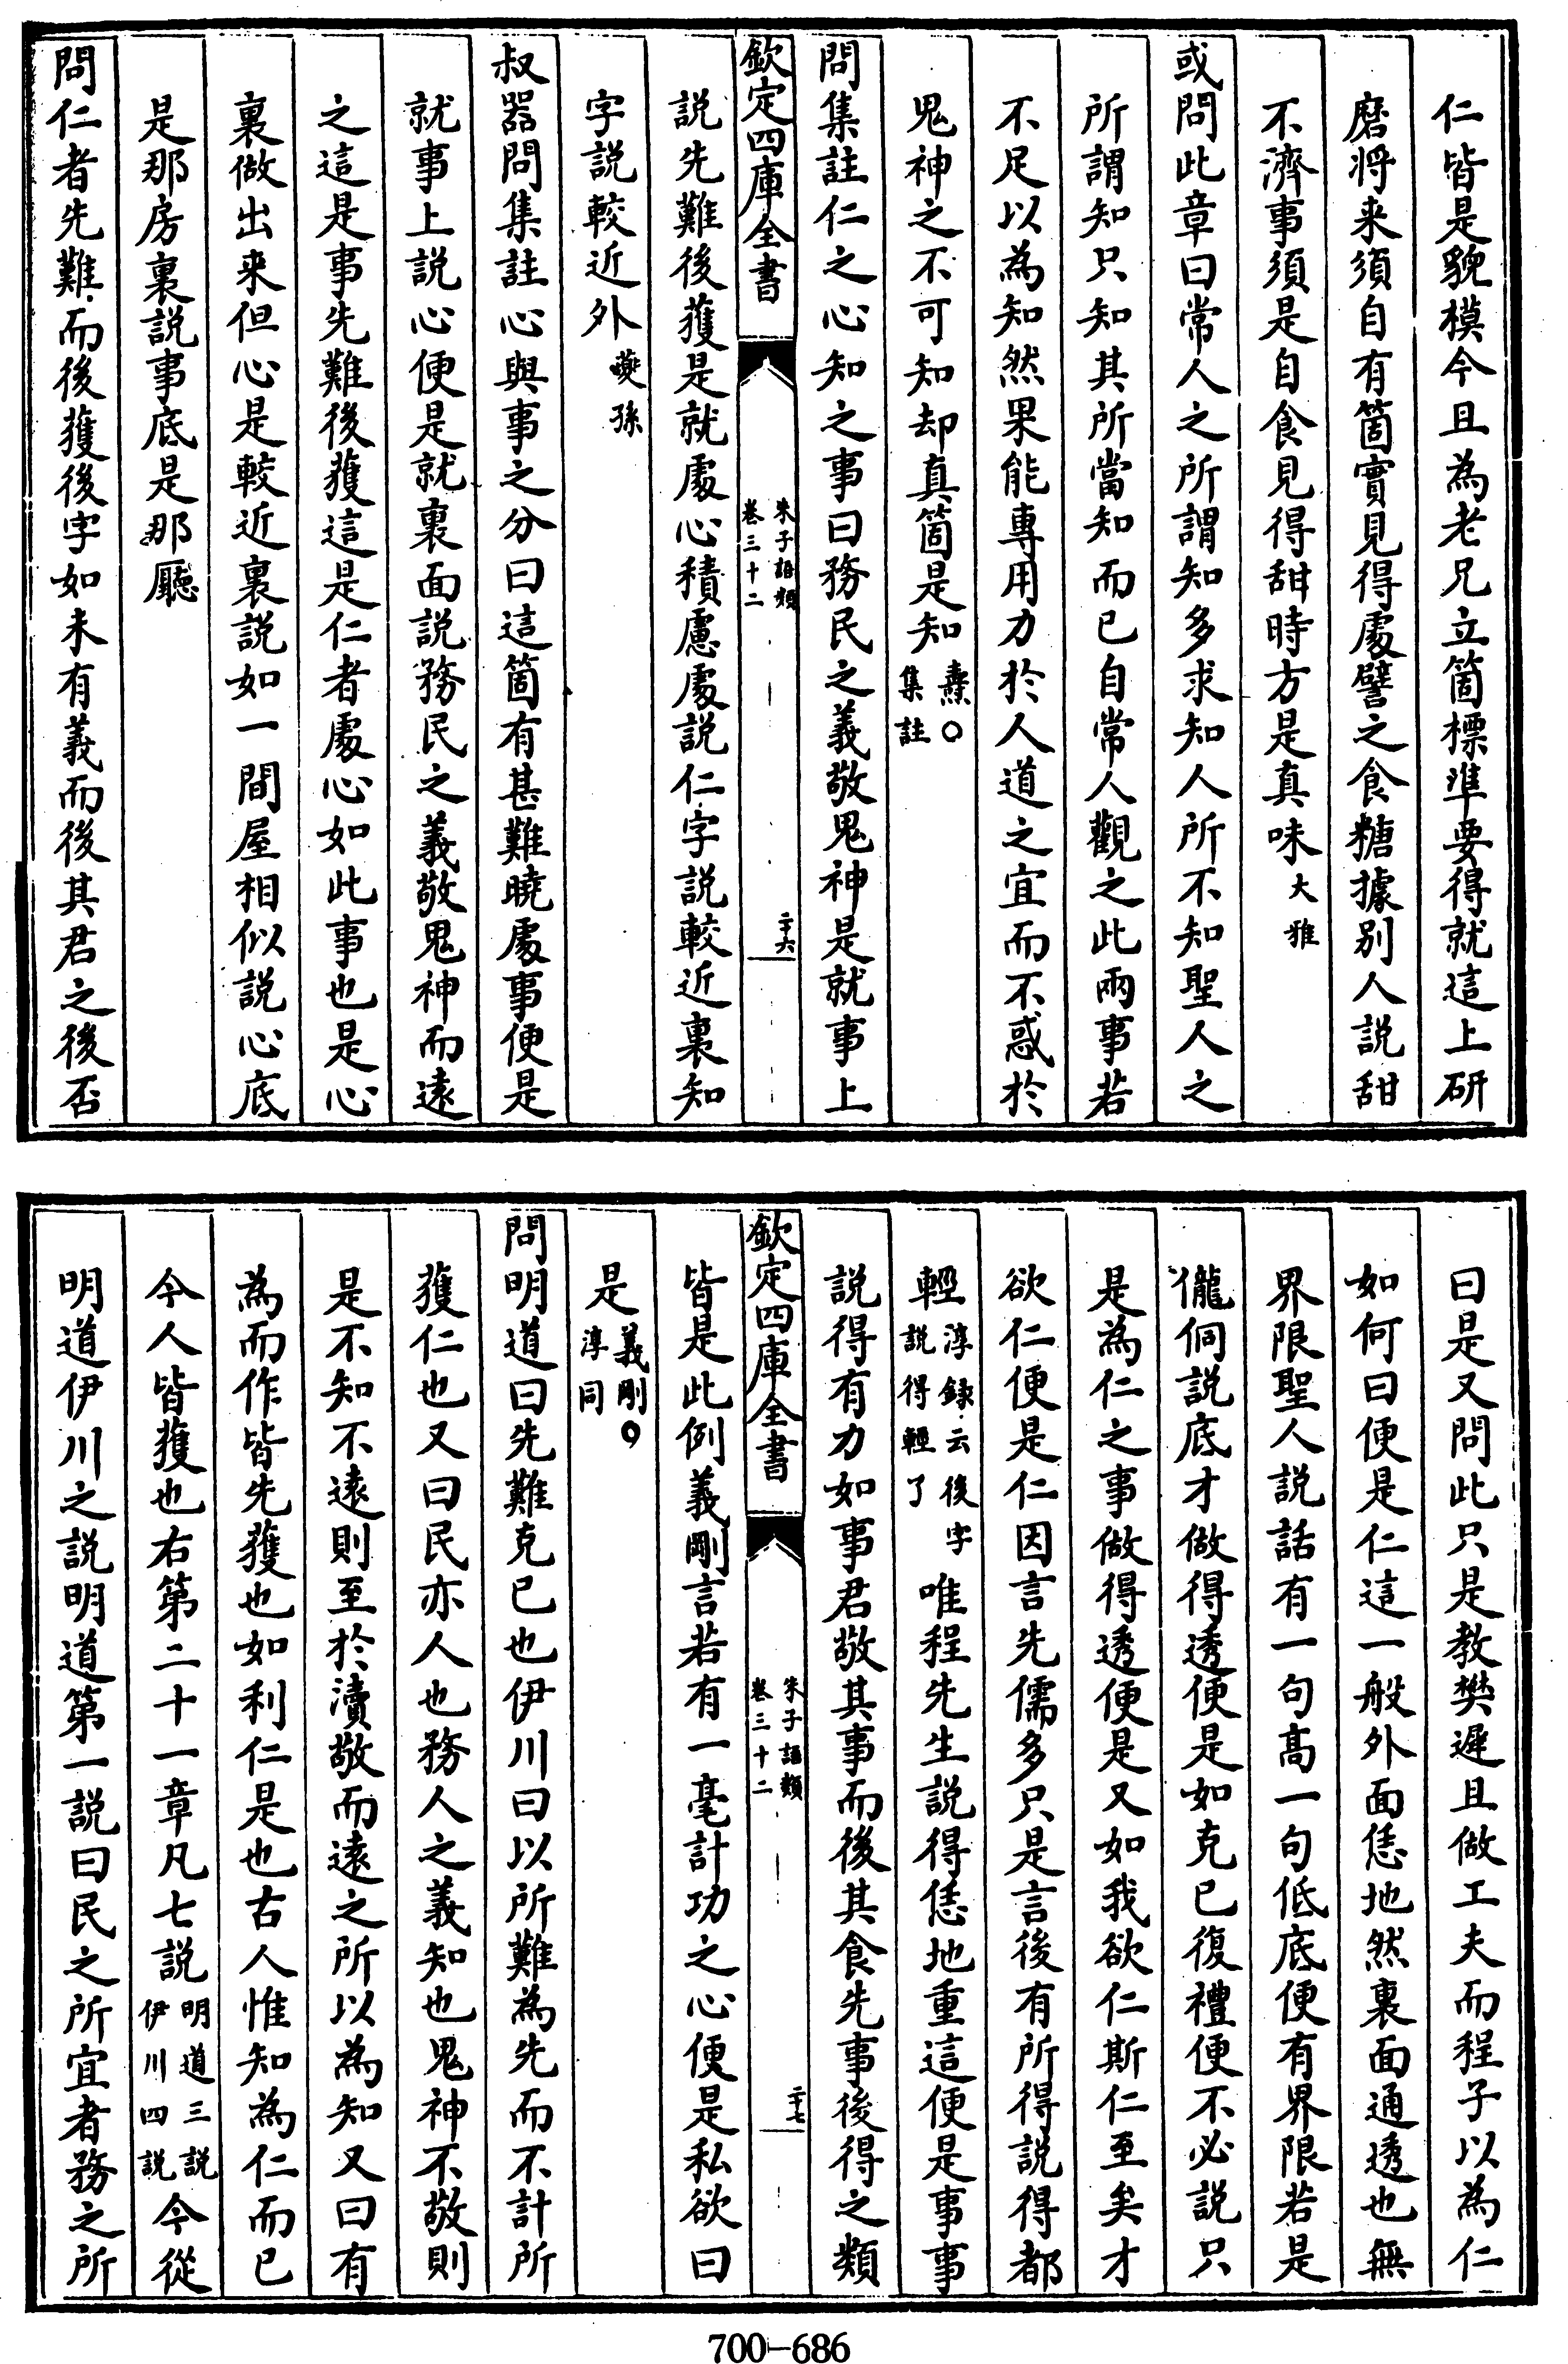 仁皆是貌模今且為老兄立箇標準要得就這上研
磨将来須自有箇實見得處譬之食糖據别人説甜
不濟事須是自食見得甜時方是真味大雅
或問此章曰常人之所謂知多求知人所不知聖人之
所謂知只知其所當知而已自常人觀之此兩事若
不足以為知然果能專用力於人道之宜而不惑於
鬼神之不可知却真箇是知燾○集註
問集註仁之心知之事曰務民之義敬鬼神是就事上
欽定四庫全書
朱子語類
卷三十二
二十六
説先難後獲是就處心積慮處説仁字説較近裏知
字説較近外夔孫
叔器問集註心與事之分曰這箇有甚難曉處事便是
就事上説心便是就裏面説務民之義敬鬼神而遠
之這是事先難後獲這是仁者處心如此事也是心
裏做出来但心是較近裏説如一間屋相似説心底
是那房裏説事底是那廳
問仁者先難而後獲後字如未有義而後其君之後否
曰是又問此只是教樊遲且做工夫而程子以為仁
如何曰便是仁這一般外面恁地然裏面通透也無
界限聖人説話有一句高一句低底便有界限若是
儱侗説底才做得透便是如克已復禮便不必説只
是為仁之事做得透便是又如我欲仁斯仁至矣才
欲仁便是仁因言先儒多只是言後有所得説得都
輕淳録云後字説得輕了唯程先生説得恁地重這便是事事
説得有力如事君敬其事而後其食先事後得之類
欽定四庫全書
朱子語類
卷三十二
二十七
皆是此例義剛言若有一毫計功之心便是私欲曰
是義剛○淳同
問明道曰先難克已也伊川曰以所難為先而不計所
獲仁也又曰民亦人也務人之義知也鬼神不敬則
是不知不遠則至於瀆敬而遠之所以為知又曰有
為而作皆先獲也如利仁是也古人惟知為仁而已
今人皆獲也右第二十一章凡七説明道三説伊川四説今從
明道伊川之説明道第一説曰民之所宜者務之所
700-686